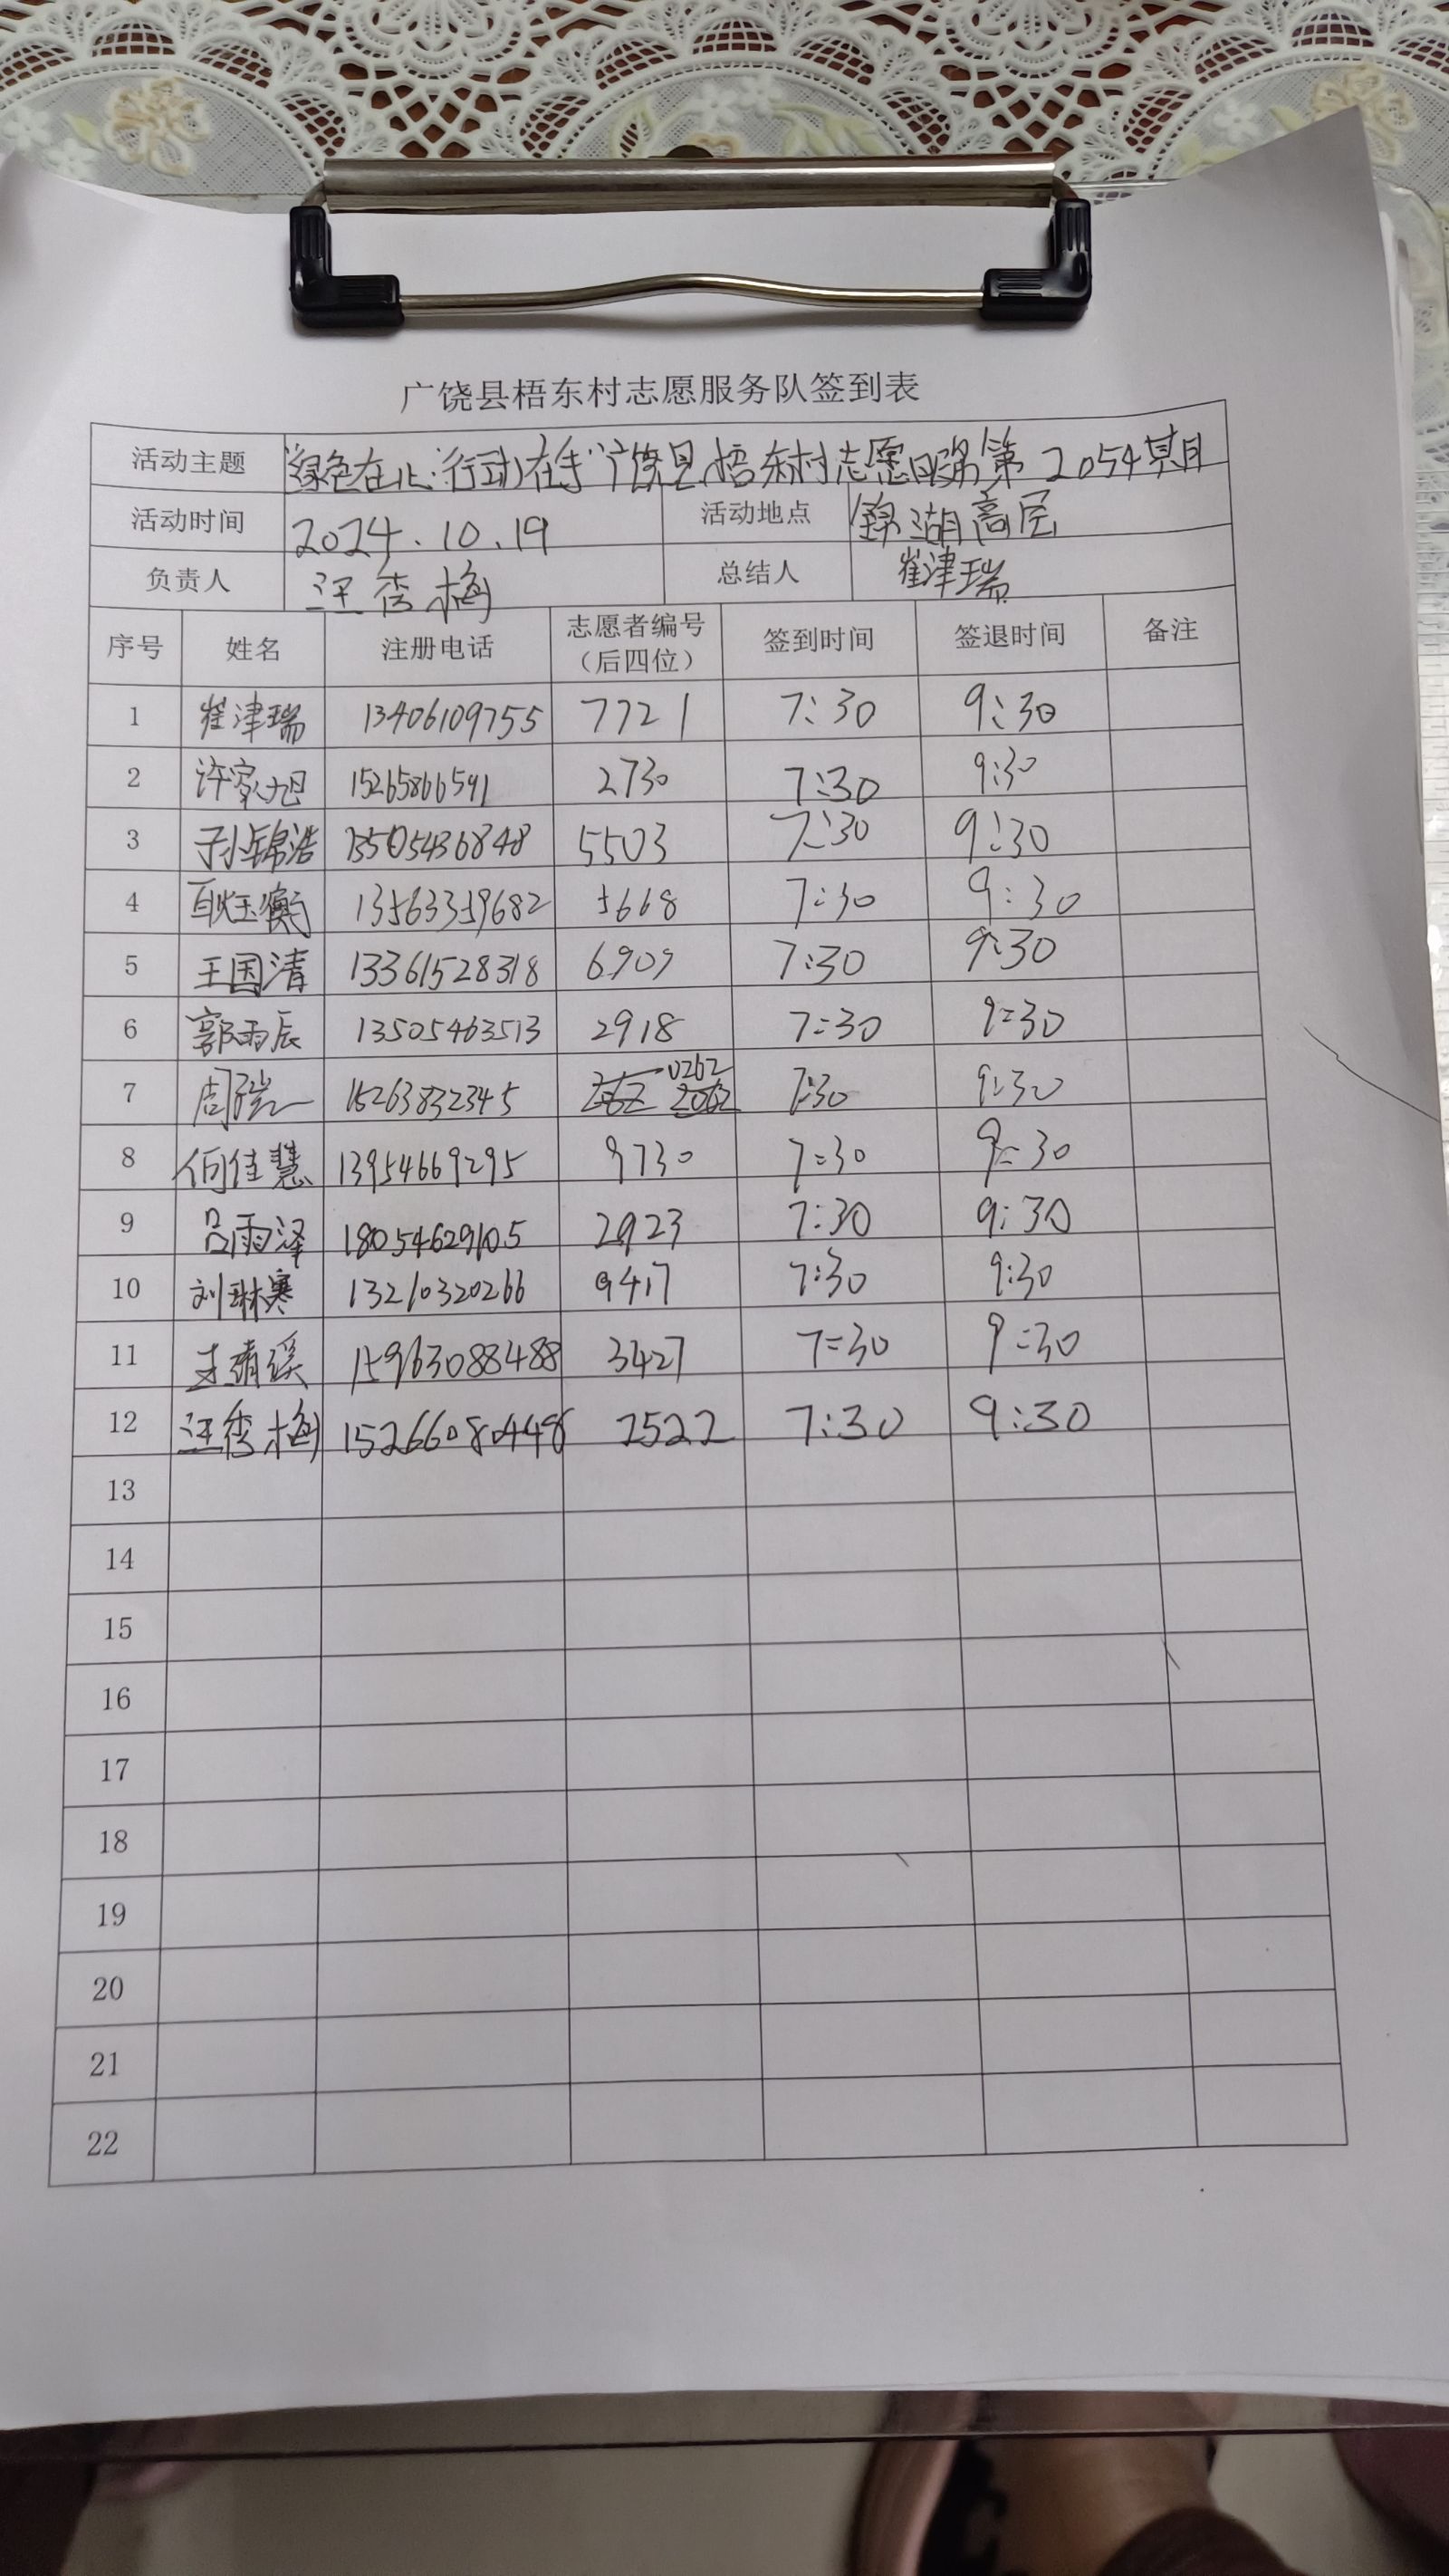 广饶县梧东村志愿服务队签到表
活动主题 “绿色在心·行动在手”广饶县梧东村志愿服务第2054期
活动时间 2024.10.19 活动地点 锦湖高层
负责人 汪秀梅 总结人 崔津瑞
序号 姓名 注册电话 志愿者编号（后四位） 签到时间 签退时间 备注
1 崔津瑞 13406109755 7721 7:30 9:30
2 许家旭 15265866591 2730 7:30 9:30
3 孙锦浩 13505436848 5503 7:30 9:30
4 耿玉衡 13563359682 5668 7:30 9:30
5 王国清 13361528318 6909 7:30 9:30
6 郭雨辰 13505463513 2918 7:30 9:30
7 周瑞一 15263832345 0262 7:30 9:30
8 何佳慧 13954669295 9730 7:30 9:30
9 吕雨泽 18054629105 2923 7:30 9:30
10 刘琳寒 13210320266 9417 7:30 9:30
11 王靖瑶 15963088488 3427 7:30 9:30
12 汪秀梅 15266080448 2522 7:30 9:30
13
14
15
16
17
18
19
20
21
22